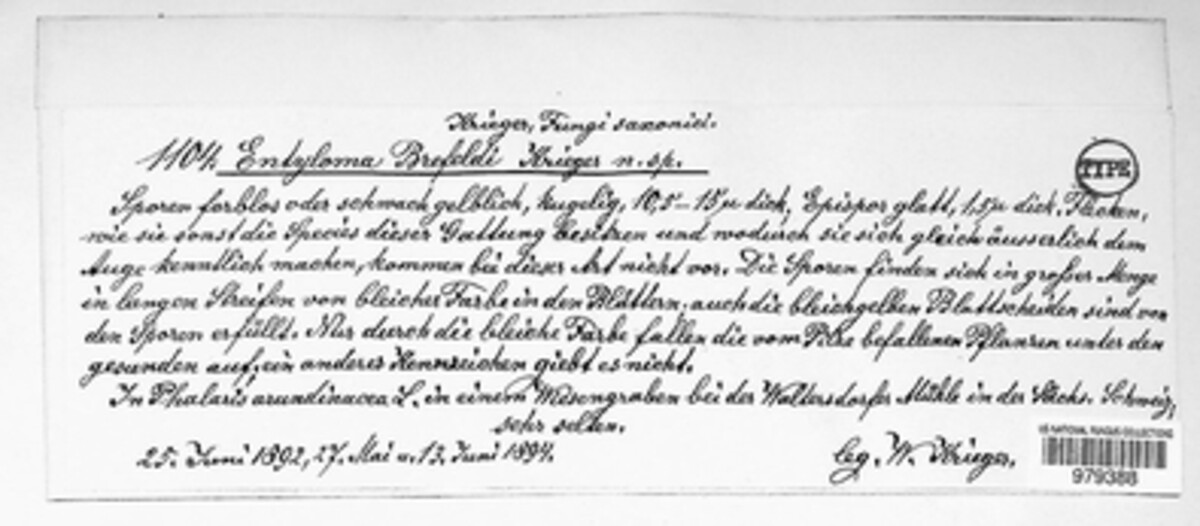 Krieger, Fungi saxonici.
1104. Entyloma Brefeldi Krieger n. sp.
TYPE
Sporen farblos oder schwach gelblich, kugelig, 10,5–15 µ dick, Epispor glatt, 1,5 µ dick. Flecken,
wie sie sonst die Species dieser Gattung besitzen und wodurch sie sich gleich äusserlich dem
Auge kenntlich machen, kommen bei dieser Art nicht vor. Die Sporen finden sich in großer Menge
in langen Streifen von bleicher Farbe in den Blättern, auch die bleichgelben Blattscheiden sind von
den Sporen erfüllt. Nur durch die bleiche Farbe fallen die vom Pilze befallenen Pflanzen unter den
gesunden auf, ein anderes Kennzeichen giebt es nicht.
In Phalaris arundinacea L. in einem Wiesengraben bei der Waltersdorfer Mühle in der Sächs. Schweiz,
sehr selten.
25. Juni 1892, 27. Mai u. 13. Juni 1894.
leg. W. Krieger.
US NATIONAL FUNGUS COLLECTIONS
979388